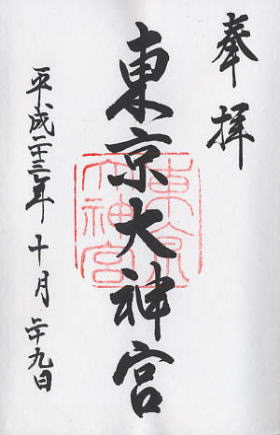 奉拝
東京大神宮
東京
大神宮
平成二十三年十月二十九日